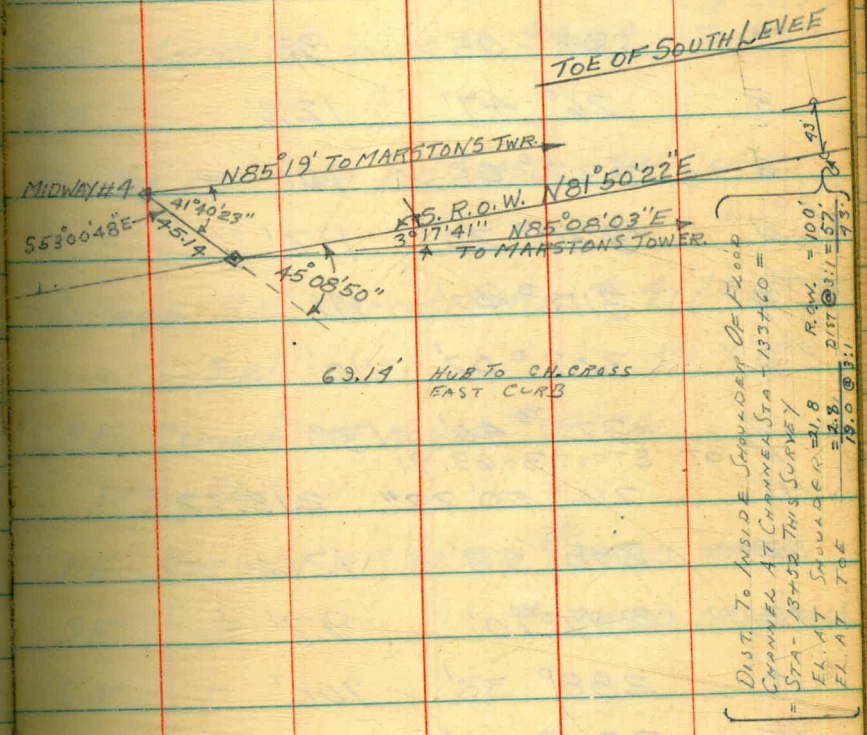 TOE OF SOUTH LEVEE
N85°19' TO MARSTONS TWR.
MIDWAY #4
41°40'23"
S53°00'48"E
45.14
S. R.O.W. N81°50'22"E
3°17'41" N85°08'03"E
TO MARSTONS TOWER.
45°08'50"
69.14' HUB TO CH. CROSS
EAST CURB
43'
DIST. TO INSIDE SHOULDER OF FLOOD
CHANNEL AT CHANNEL STA - 133+60 =
= STA - 13+52 THIS SURVEY
EL. AT SHOULDER = 21.8 R.O.W. = 100'
EL. AT TOE = 2.8 DIST @ 3:1 = 57'
19.0 @ 3:1 43'